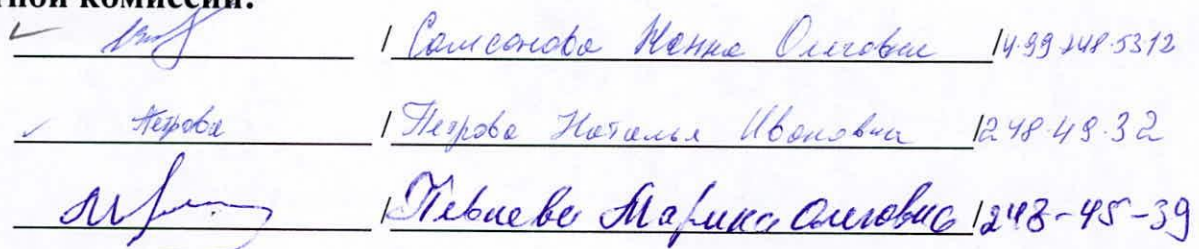 тной комиссии:
/ Самсонова Жанна Олеговна /4-99-248-53-12
Петрова / Петрова Наталья Ивановна /248-49-32
/ Певнева Марина Олеговна /248-45-39